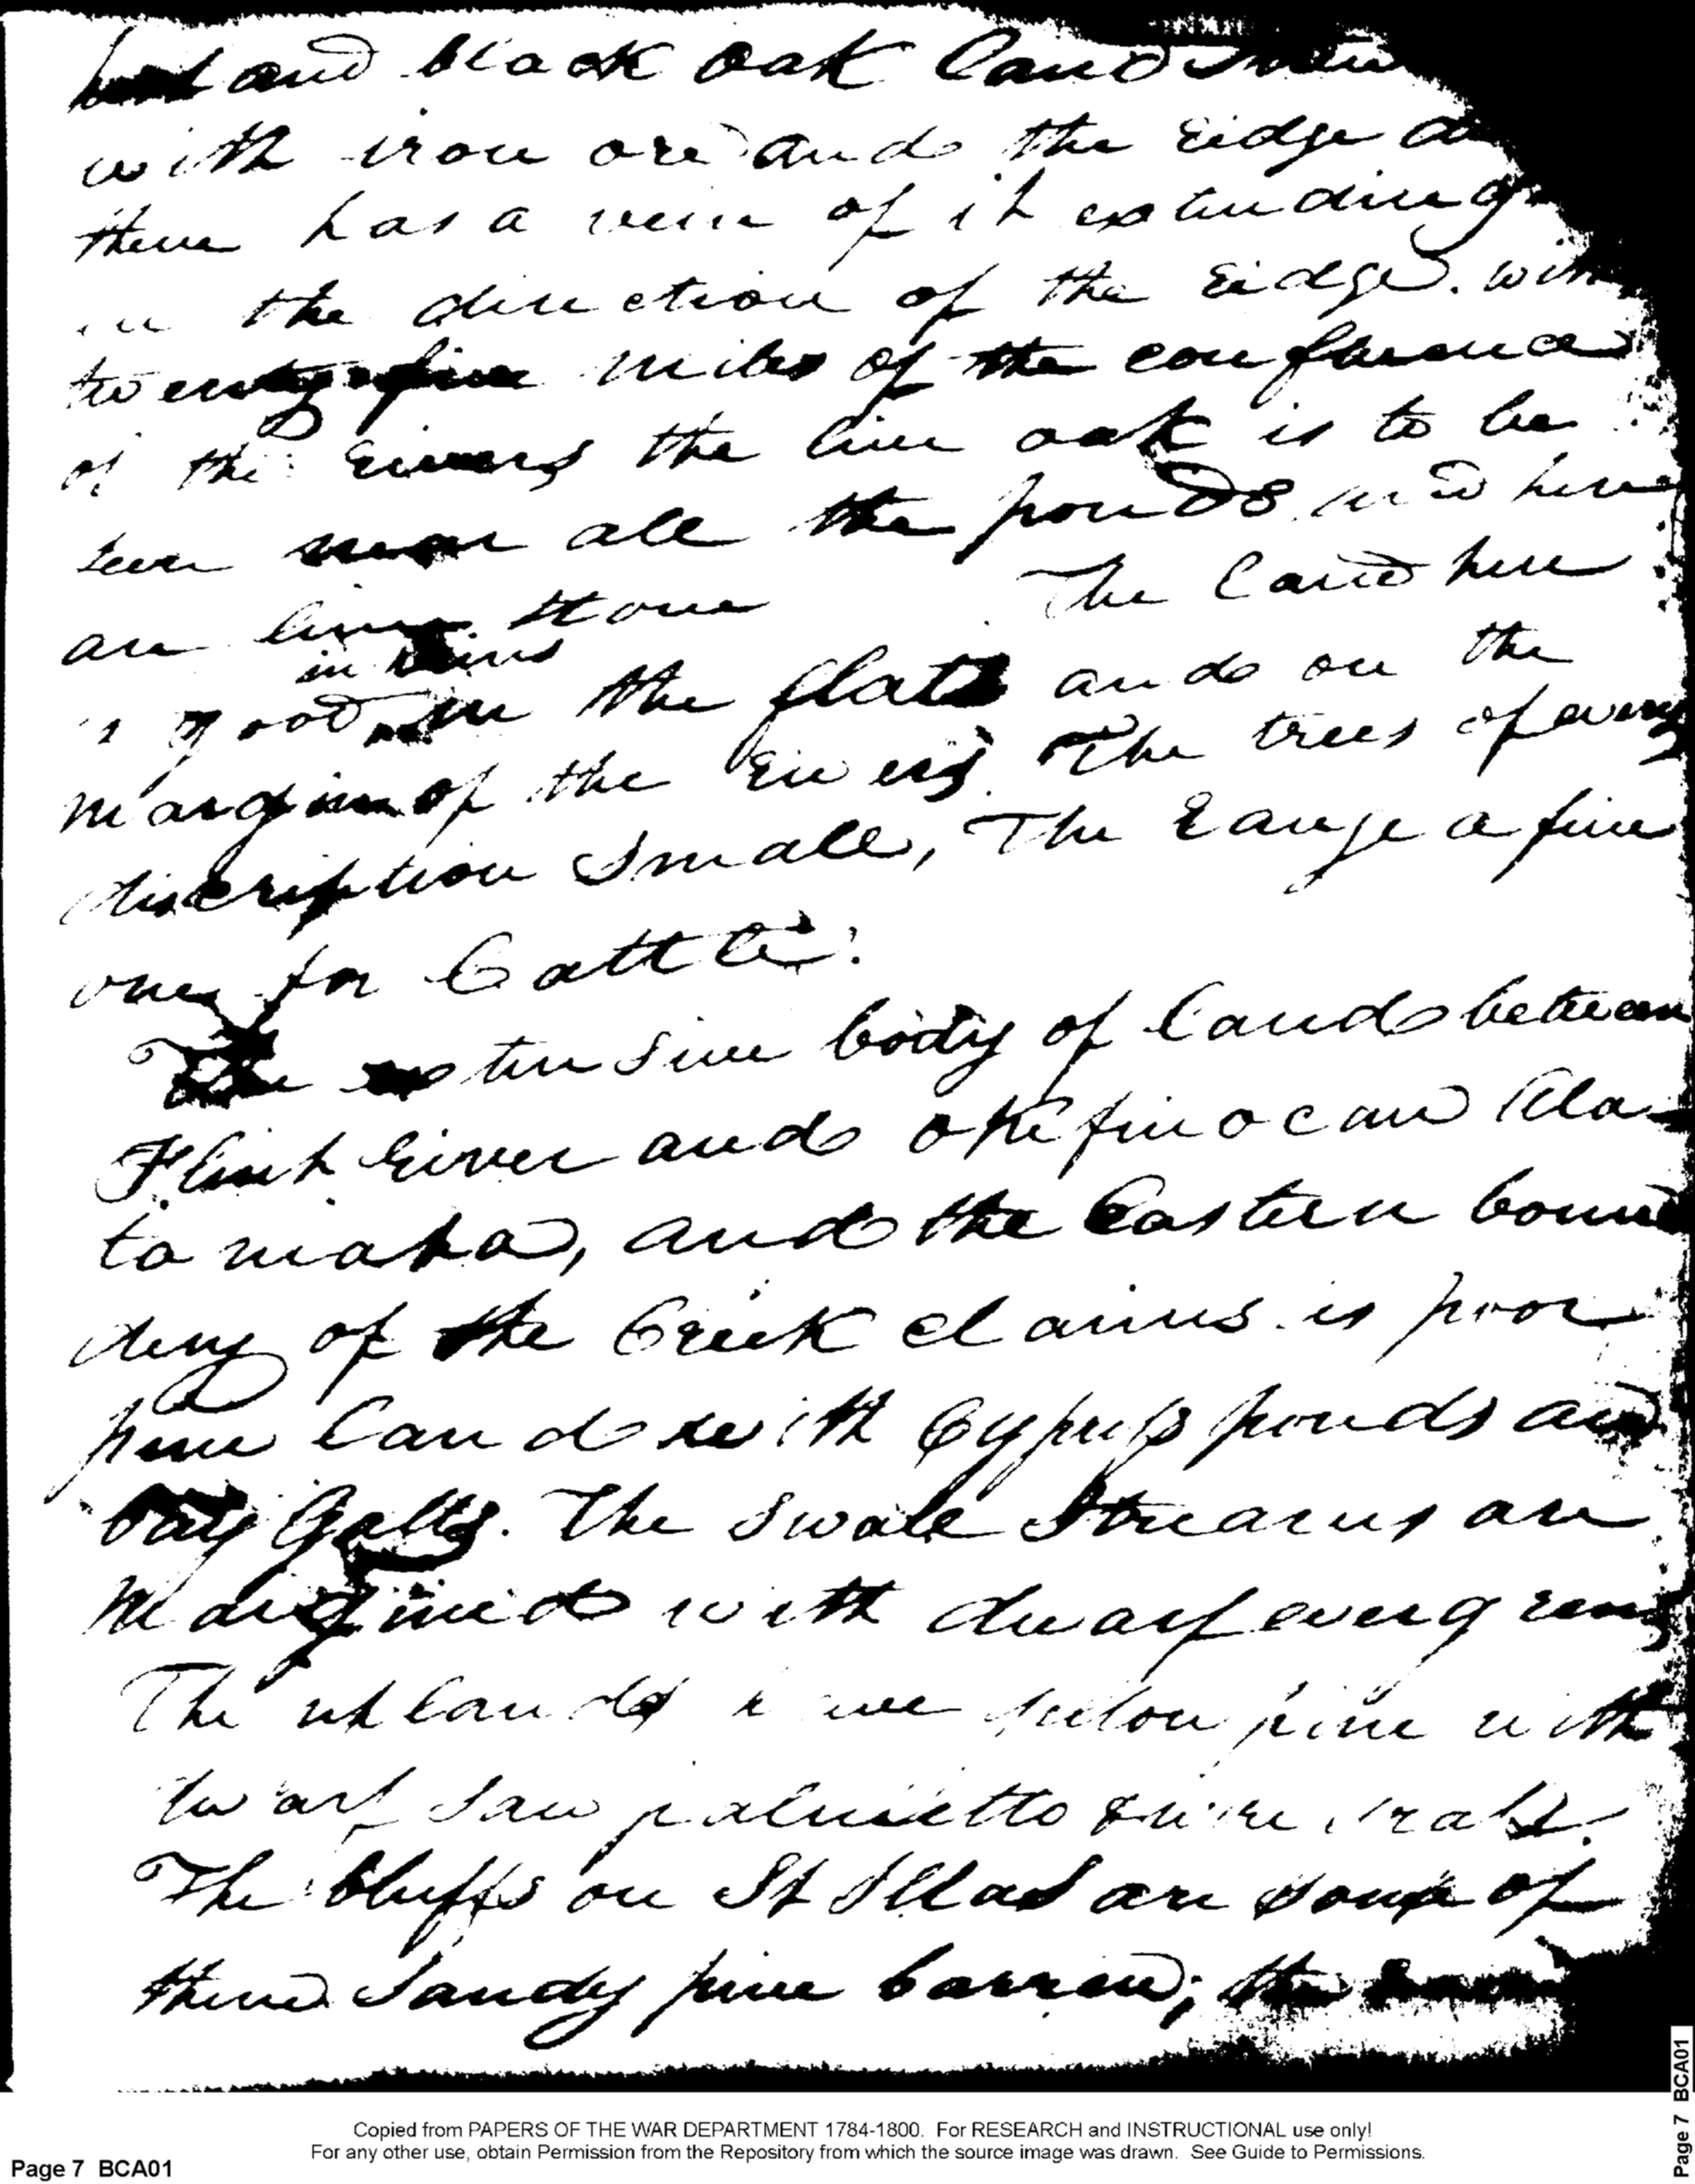 and black oak land
with iron ore and the ridge
there has a vein of it extending
in the direction of the ridge. with
twenty five miles of the confluence
of the rivers the live oak is to be
seen near all the ponds and here
are lime stone The land here
in veins
is good in the flats and on the
margin of the rivers. The trees of every
discription small, The range a fine
one for Cattle.
The extensive body of land between
Flint river and okefinocau Ala-
tamaha, and the Eastern boun
dary of the Creek claims is poor
pine land with Cyprus ponds and
bay Galls. The swale streams are
margined with dwarf evergreens
The uplands have pine with
dwarf saw palmetto
The bluffs on St Illas are some of
them sandy pine barren; the
Copied from PAPERS OF THE WAR DEPARTMENT 1784-1800. For RESEARCH and INSTRUCTIONAL use only!
For any other use, obtain Permission from the Repository from which the source image was drawn. See Guide to Permissions.
Page 7 BCA01
Page 7 BCA01